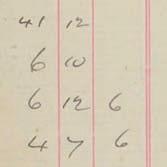 41 12
6 10
6 12 6
4 7 6